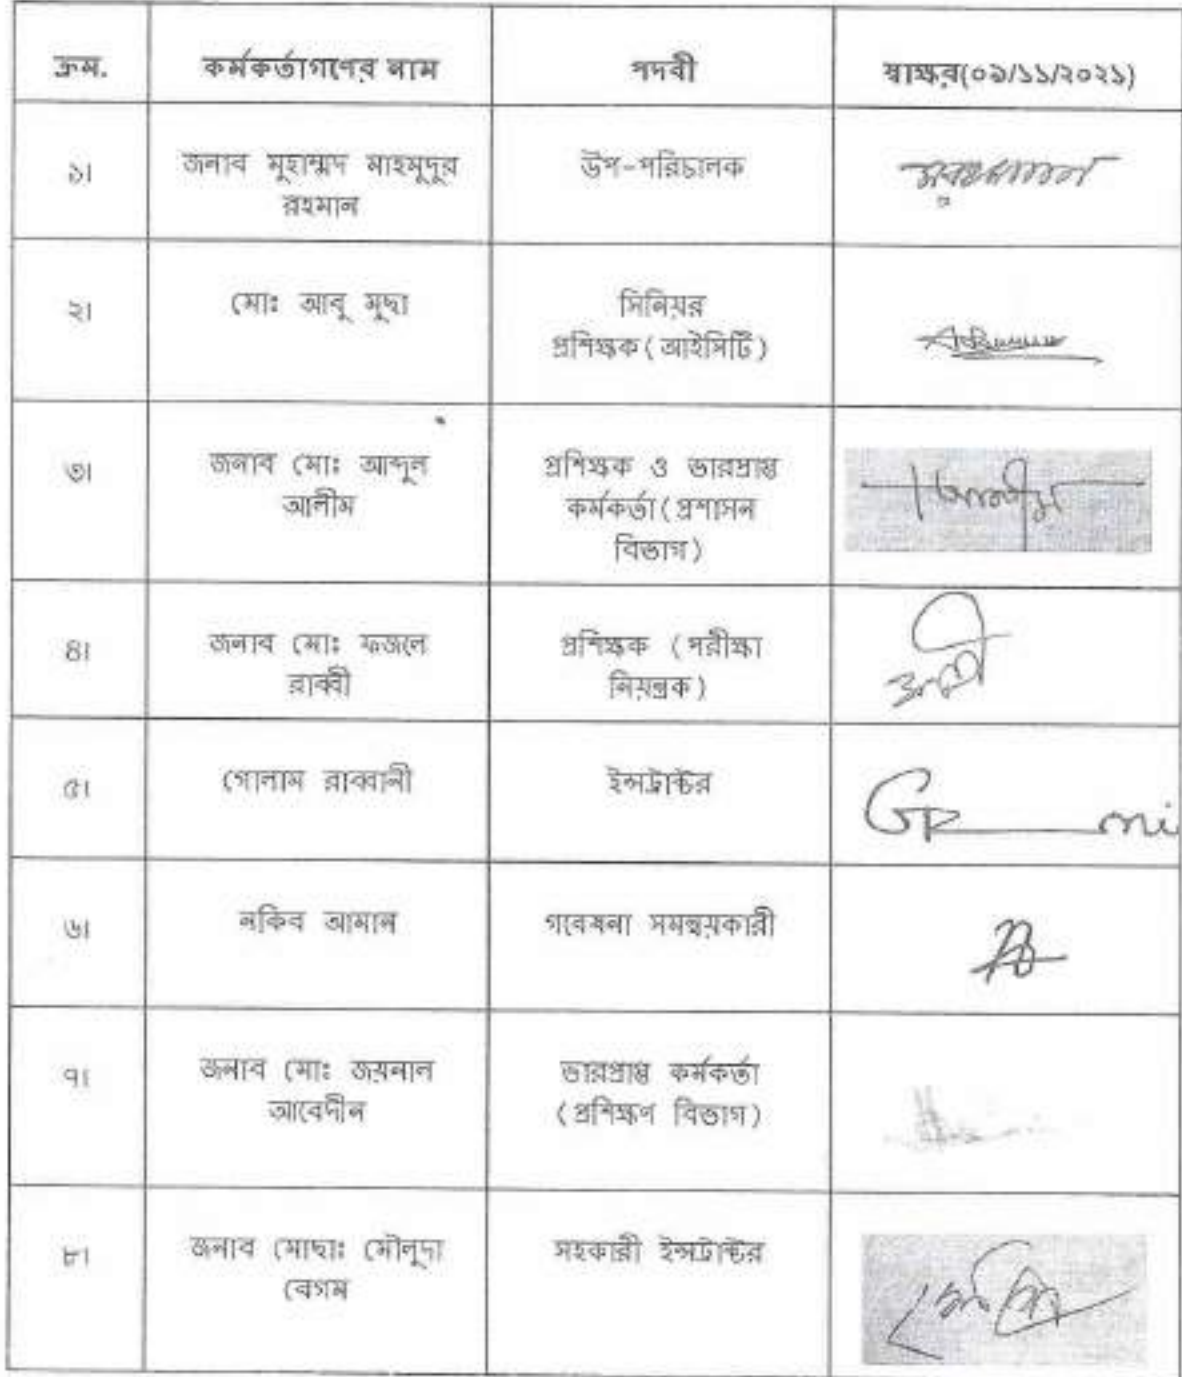 ক্রম. কর্মকর্তাগণের নাম পদবী স্বাক্ষর(০৯/১১/২০২১)
১। জনাব মুহাম্মদ মাহমুদুর উপ-পরিচালক
রহমান
২। মোঃ আবু মুছা সিনিয়র
প্রশিক্ষক(আইসিটি)
৩। জনাব মোঃ আব্দুল প্রশিক্ষক ও ভারপ্রাপ্ত
আলীম কর্মকর্তা(প্রশাসন
বিভাগ)
৪। জনাব মোঃ ফজলে প্রশিক্ষক (পরীক্ষা
রাব্বী নিয়ন্ত্রক)
৫। গোলাম রাব্বানী ইন্সট্রাক্টর
৬। নকিব আমান গবেষনা সমন্বয়কারী
৭। জনাব মোঃ জয়নাল ভারপ্রাপ্ত কর্মকর্তা
আবেদীন (প্রশিক্ষণ বিভাগ)
৮। জনাব মোছাঃ মৌলুদা সহকারী ইন্সট্রাক্টর
বেগম